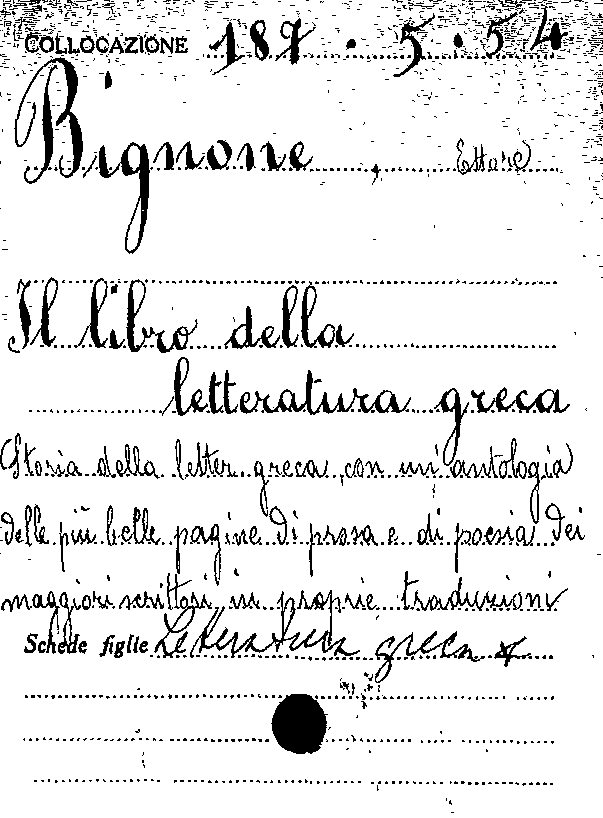 COLLOCAZIONE 187.5.54
Bignone, Ettore
Il libro della
letteratura greca
Storia della letter. greca, con un'antologia
delle più belle pagine di prosa e di poesia dei
maggiori scrittori, in proprie traduzioni
Schede figlie Letteratura greca *